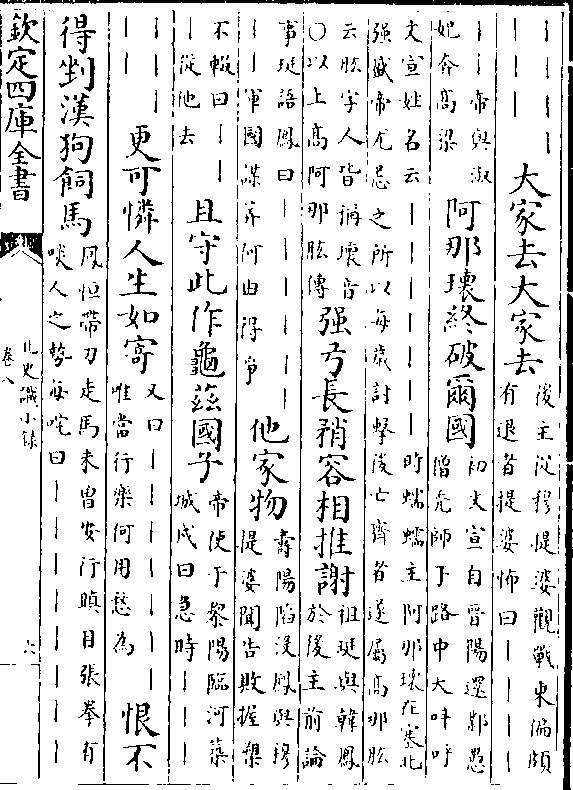 ｜｜｜｜
｜｜｜
大家去大家去
後主從穆提婆觀戰東偏頗
有退者提婆怖曰｜｜｜｜
｜｜帝與淑
妃奔高梁
阿那瓌終破爾國
初文宣自晉陽還鄴愚
僧禿師于路中大呼呼
文宣姓名云｜｜｜｜｜｜｜時蠕蠕主阿那瓌在塞北
强盛帝尤忌之所以每歲討擊後亡齊者遂屬高那肱
云肱字人皆稱瓌音
〇以上高阿那肱傳
强弓長矟容相推謝
祖珽與韓鳳
於後主前論
事珽語鳳曰｜｜｜｜｜
｜｜軍國謀筭何由得爭
他家物
壽陽陷沒鳳與穆
提婆聞告敗握槊
不輟曰｜｜｜
｜從他去
且守此作龜茲國子
帝使于黎陽臨河築
城戍曰急時｜｜｜
｜｜｜
｜｜
更可憐人生如寄
又曰｜｜｜｜｜｜｜
唯當行樂何用愁為
恨不
得剉漢狗飼馬
鳳恒帶刀走馬未曾安行瞋目張拳有
啖人之勢每咤曰｜｜｜｜｜｜｜｜
欽定四庫全書
北史識小錄
卷八
六